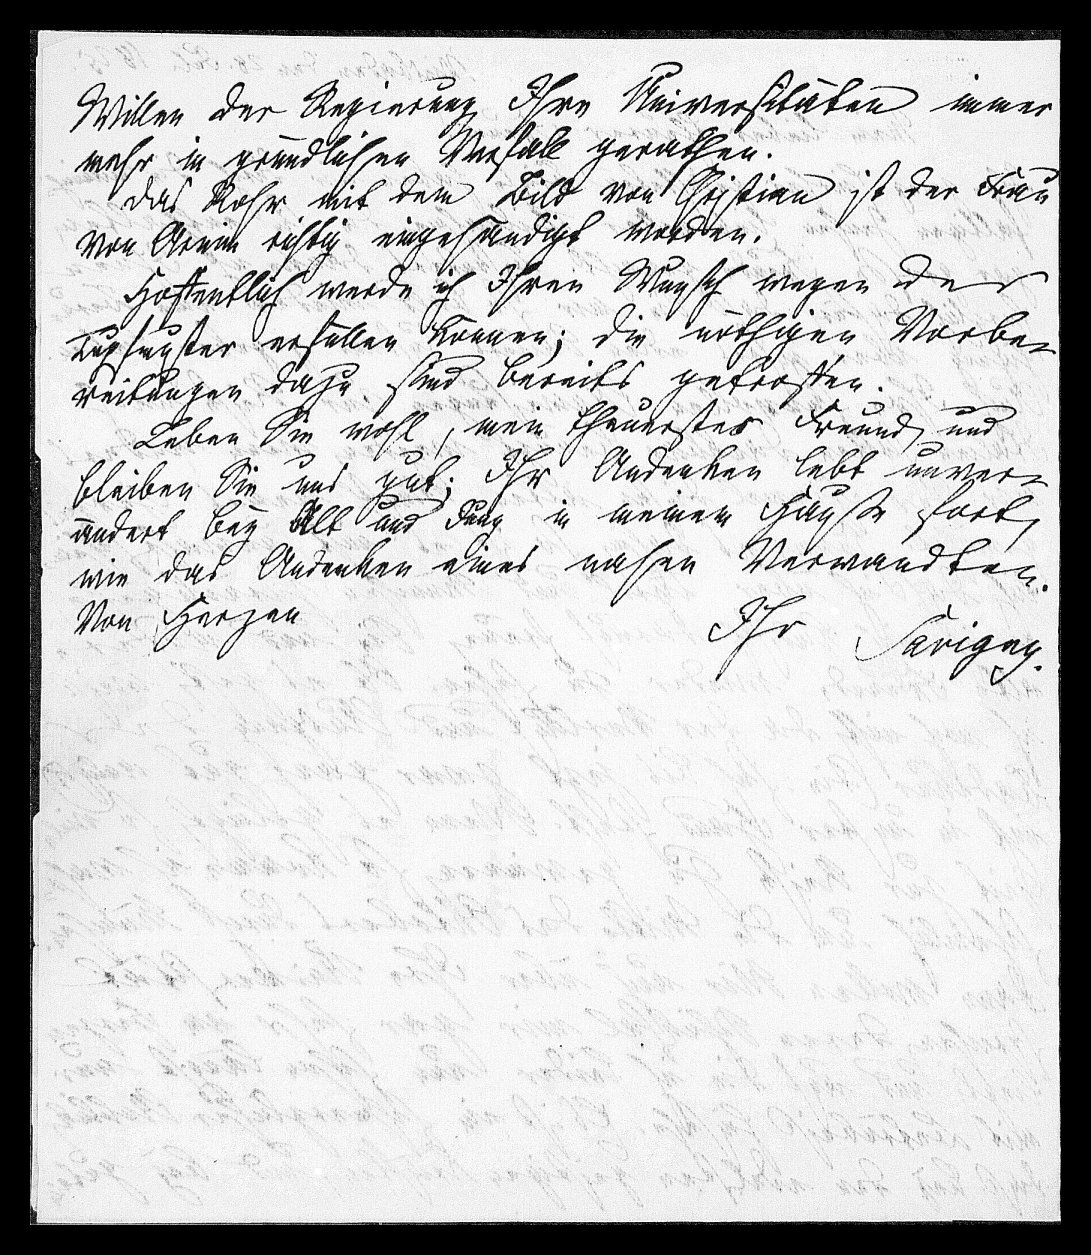 Willen der Regierung Ihre Universitäten immer
mehr in gründlichen Verfall gerathen.
Das Rohr mit dem Bild von Christian ist der Frau
von Arnim richtig eingehändigt worden.
Hoffentlich werde ich Ihren Wunsch wegen der
erfüllen können; die nöthigen Vorbe-
reitungen dazu sind bereits getroffen.
Leben Sie wohl, mein theuerster Freund, und
bleiben Sie uns gut; Ihr Andenken lebt unver-
ändert bey Alt und Jung in meinem Hause fort,
wie das Andenken eines nahen Verwandten.
Von Herzen
Ihr Savigny.